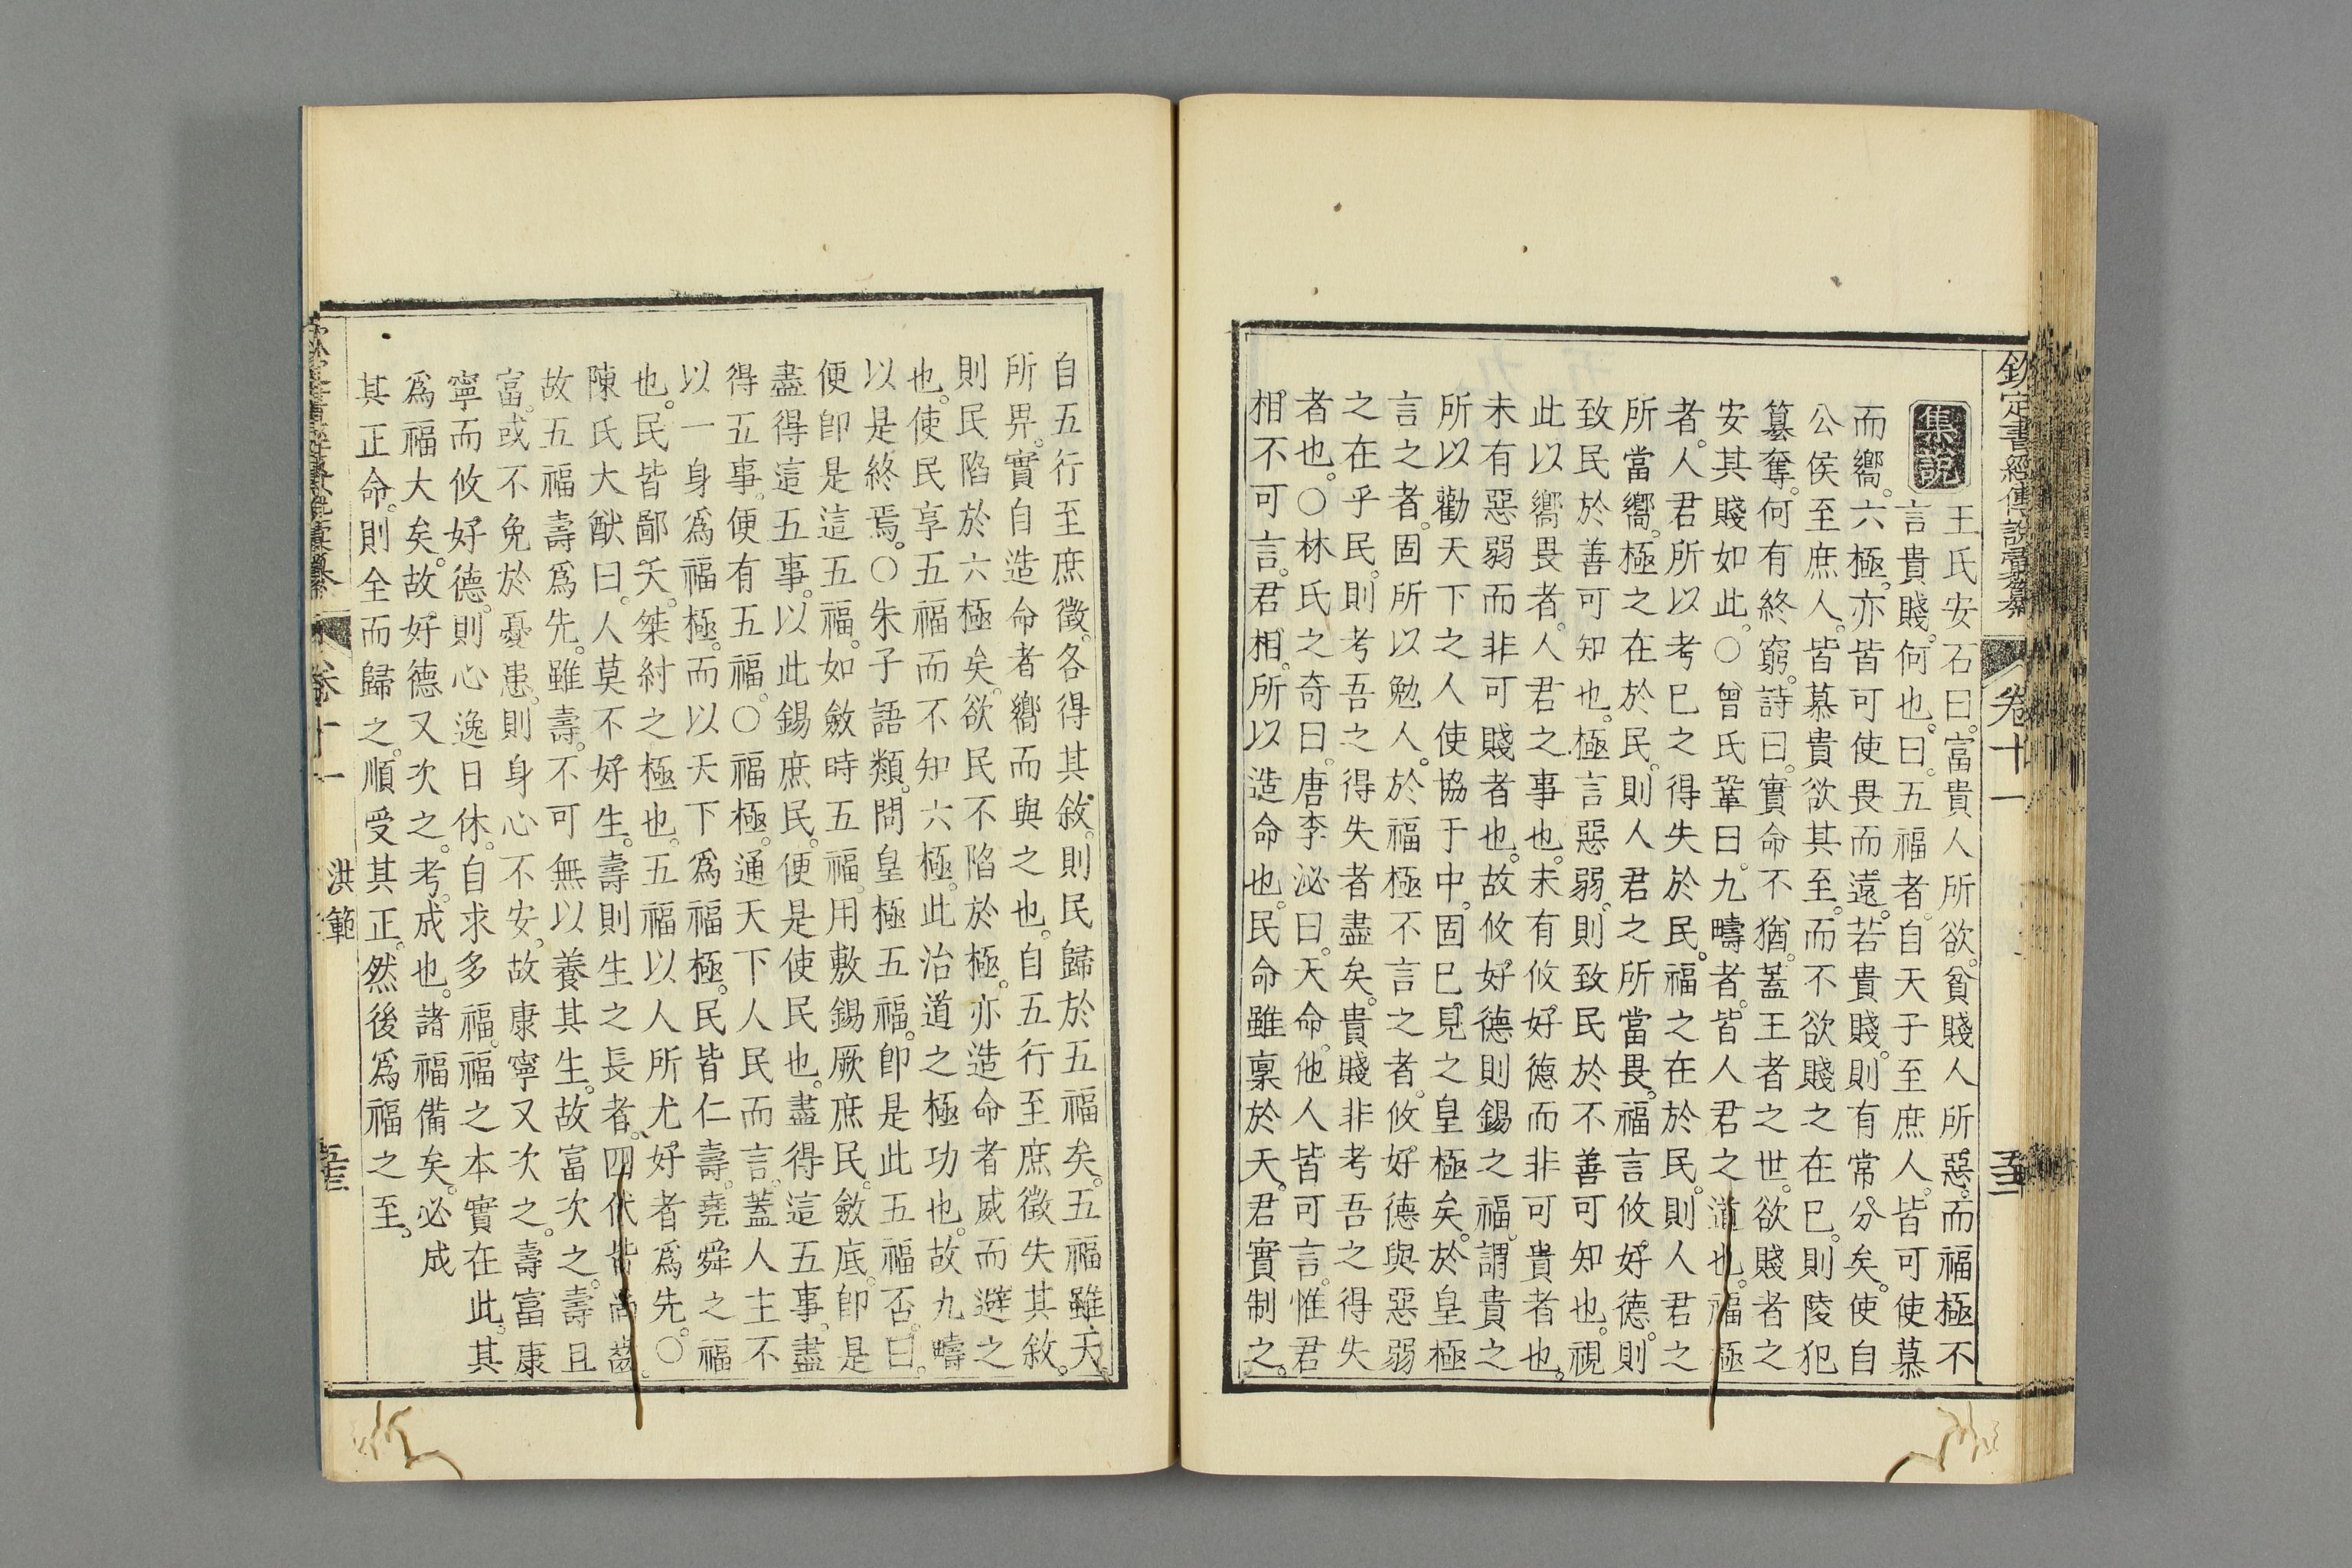 欽定書經傳說彙纂
卷十一
集說
王氏安石曰。富貴人所欲。貧賤人所惡。而福極不
言貴賤。何也。曰。五福者。自天子至庶人。皆可使慕
而嚮。六極。亦皆可使畏而遠。若貴賤。則有常分矣。使自
公侯至庶人。皆慕貴欲其至。而不欲賤之在巳。則陵犯
簒奪。何有終窮。詩曰。實命不猶。蓋王者之世。欲賤者之
安其賤如此。○曾氏鞏曰。九疇者。皆人君之道也。福極
者。人君所以考巳之得失於民。福之在於民。則人君之
所當嚮。極之在於民。則人君之所當畏。福言攸好德。則
致民於善可知也。極言惡弱。則致民於不善可知也。視
此以嚮畏者。人君之事也。未有攸好德而非可貴者也。
未有惡弱而非可賤者也。故攸好德則錫之福。謂貴之
所以勸天下之人使協于中。固巳見之皇極矣。於皇極
言之者。固所以勉人。於福極不言之者。攸好德與惡弱
之在乎民。則考吾之得失者盡矣。貴賤非考吾之得失
者也。○林氏之奇曰。唐李泌曰。天命。他人皆可言。惟君
相不可言。君相。所以造命也。民命雖禀於天。君實制之。
自五行至庶徵。各得其敘。則民歸於五福矣。五福雖天
所畀。實自造命者嚮而與之也。自五行至庶徵失其敘。
則民陷於六極矣。欲民不陷於極。亦造命者威而避之
也。使民享五福而不知六極。此治道之極功也。故九疇
以是終焉。○朱子語類。問皇極五福。卽是此五福否。曰。
便卽是這五福。如斂時五福。用敷錫厥庶民。斂底。卽是
盡得這五事。以此錫庶民。便是使民也。盡得這五事。盡
得五事。便有五福。○福極。通天下人民而言。蓋人主不
以一身爲福極。而以天下爲福極。民皆仁壽。堯舜之福
也。民皆鄙夭。桀紂之極也。五福以人所尤好者爲先。○
陳氏大猷曰。人莫不好生。壽則生之長者。四代皆尚齒。
故五福壽爲先。雖壽。不可無以養其生。故富次之。壽且
富。或不免於憂患。則身心不安。故康寧又次之。壽富康
寧而攸好德。則心逸日休。自求多福。福之本實在此。其
爲福大矣。故好德又次之。考。成也。諸福備矣。必成
其正命。則全而歸之。順受其正。然後爲福之至。
卷十一
洪範